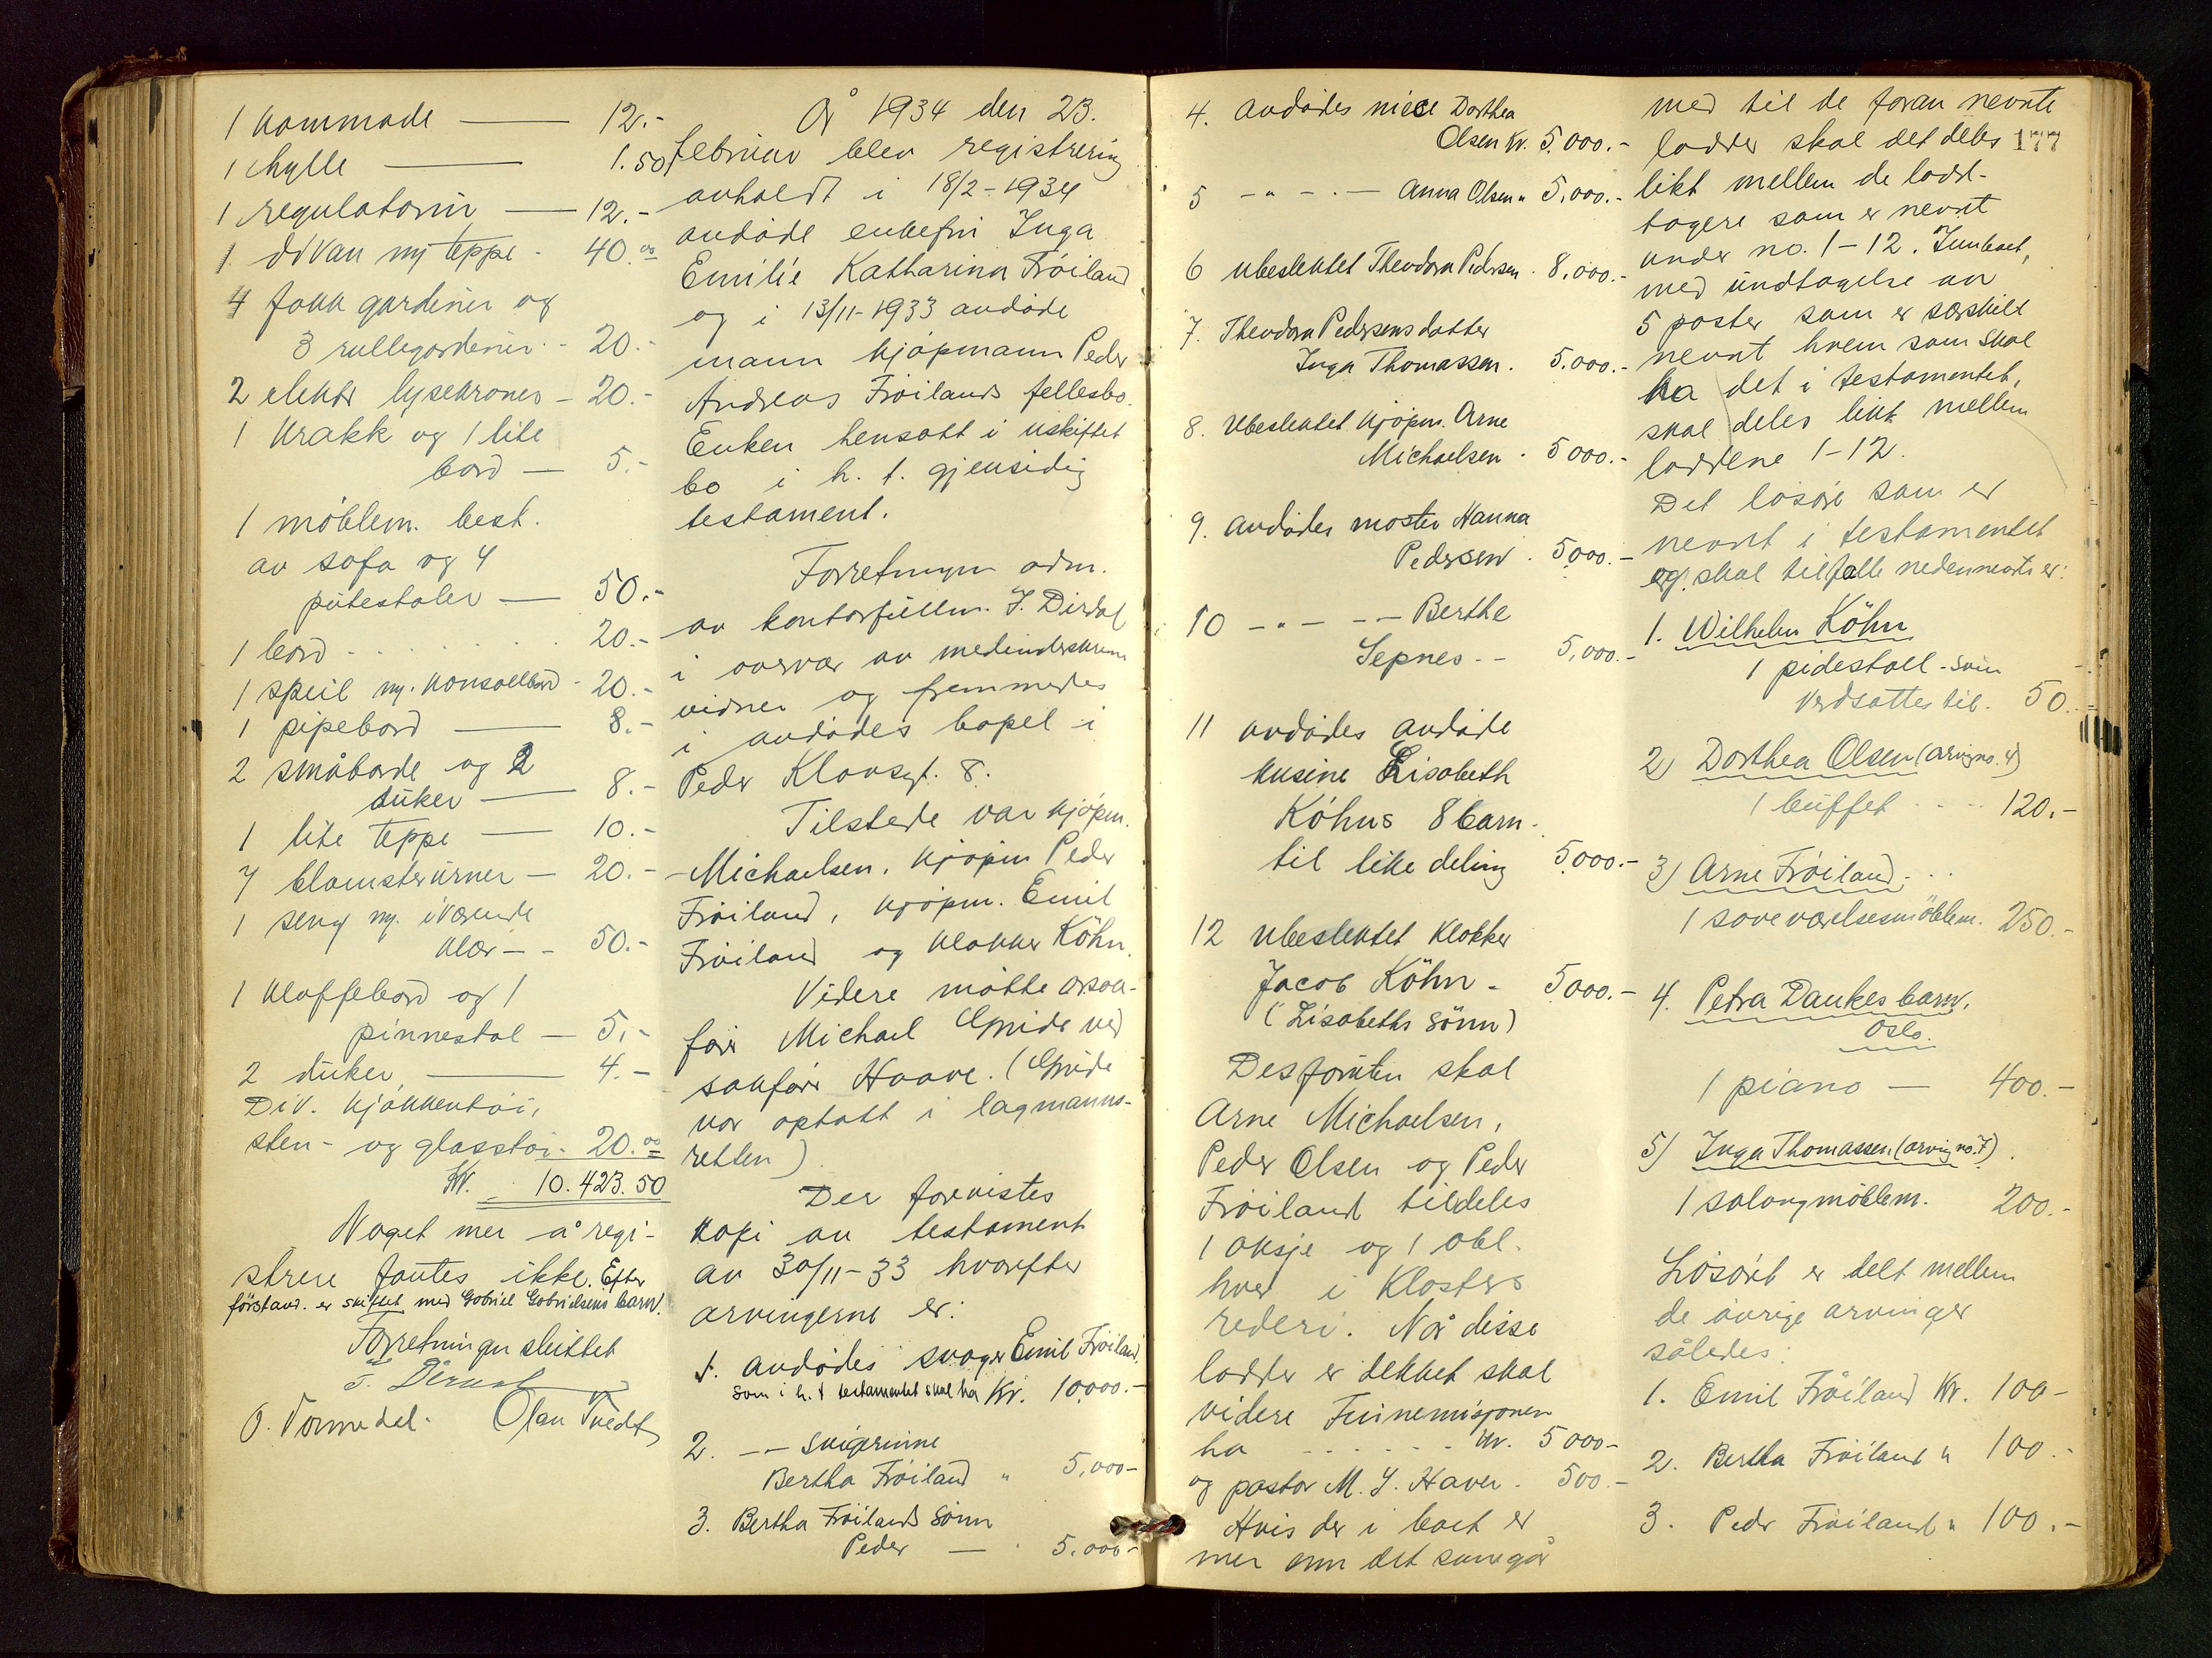 1 kommode — 12.-
1 hylle — 1.50
1 regulatorur — 12.-
1 divan m/ teppe - 40.00
4 fakk gardiner og
3 rullegardiner - 20.-
2 elektr lysekroner - 20.-
1 krakk og 1 lite
bord — 5.-
1 möblem. best.
av sofa og 4
putestoler — 50.-
1 bord . . . . 20.-
1 speil m/ konsollbord - 20.-
1 pipebord — 8.-
2 småborde og 2
duker — 8.-
1 lite teppe — 10.-
7 blomsterurner — 20.-
1 seng m/ iværende
klær - - 50.-
1 klaffebord og 1
pinnestol — 5.-
2 duker — 4.-
Div. kjökkentöi,
sten- og glasstöi - 20.00
Kr. 10.423.50
Noget mer å regi-
strere fantes ikke. Efter
forstand. er skiftet med Gabriel Gabrielsens barn.
Forretningen sluttet
J. Dirdal
O. Tormodal. Olav Tvedt
År 1934 den 23.
februar blev registrering
avholdt i 18/2-1934
avdöde enkefru Inga
Emilie Katharina Fröiland
og i 13/11-1933 avdöde
mann kjöpmann Peder
Andreas Fröilands fellesbo.
Enken hensatt i uskiftet
bo i h. t. gjensidig
testament.
Forretningen adm.
av kontorfullm. J. Dirdal
i overvær av medunderskrevne
vidner og fremmedes
i avdödes bopel i
Peder Klowsgt. 8.
Tilstede var kjöpm.
Michaelsen, kjöpm Peder
Fröiland, kjöpm. Emil
Fröiland og klokker Köhn.
Videre mötte orsak-
förer Michael Gmide ved
sakförer Haave. (Gmide
var optatt i lagmanns-
retten)
Der forevistes
kopi av testament
av 30/11-33 hvorefter
arvingerne er:
1. avdödes svoger Emil Fröiland,
som i h. t testamentet skal ha Kr. 10.000.-
2. -- svigerinne
Bertha Fröiland " 5,000-
3. Bertha Fröilands sönn
Peder — 5.000-
4. avdödes niece Dorthea
Olsen Kr. 5.000.-
5 - " - . - Anna Olsen " 5,000.-
6 ubeslektet Theodora Pedersen . 8,000.-
7. Theodora Pedersens datter
Inga Thomassen . 5.000.-
8. Ubeslektet kjöpm. Arne
Michaelsen . 5 000.-
9. avdödes moster Hanna
Pedersen . 5000.-
10 - " - -- Berthe
Sepnes - - 5,000.-
11 avdödes avdöde
kusine Lisabeth
Köhns 8 barn -
til like deling 5000.-
12 ubeslektet klokker
Jacob Köhn - 5000.-
(Lisabeths sönn)
Desforuten skal
Arne Michaelsen,
Peder Olsen og Peder
Fröiland tildeles
1 aksje og 1 obl.
hver i Klosters
rederi. Når disse
lodder er dekket skal
videre Finnemisjonen
ha . . . . . . Kr. 5 000-
og pastor M. S. Haver - 500.-
Hvis der i boet er
mer enn det som går
med til de foran nevnte
lodder skal det deles
177
likt mellem de lodd-
tagere som er nevnt
under no. 1-12. Innboet,
med undtagelse av
5 poster som er særskilt
nevnt hvem som skal
ha det i testamentet,
skal deles likt mellem
loddene 1-12.
Det lösöre som er
nevnt i testamentet
og skal tilfalle nedennevnte er:
1. Wilhelm Köhn
1 pidestall - som
verdsattes til - 50.-
2) Dorthea Olsen (arving no. 4)
1 buffet . . . . 120.-
3) Arne Fröiland. . .
1 soveværelsesmöblem. 250.-
4. Petra Dankes barn,
Oslo.
1 piano — 400.-
5) Inga Thomassen (arving no. 7).
1 salongmöblem. 200.-
Lösöret er delt mellem
de övrige arvinger
således:
1. Emil Fröiland Kr. 100-
2. Bertha Fröiland " 100.-
3. Peder Fröiland " 100.-